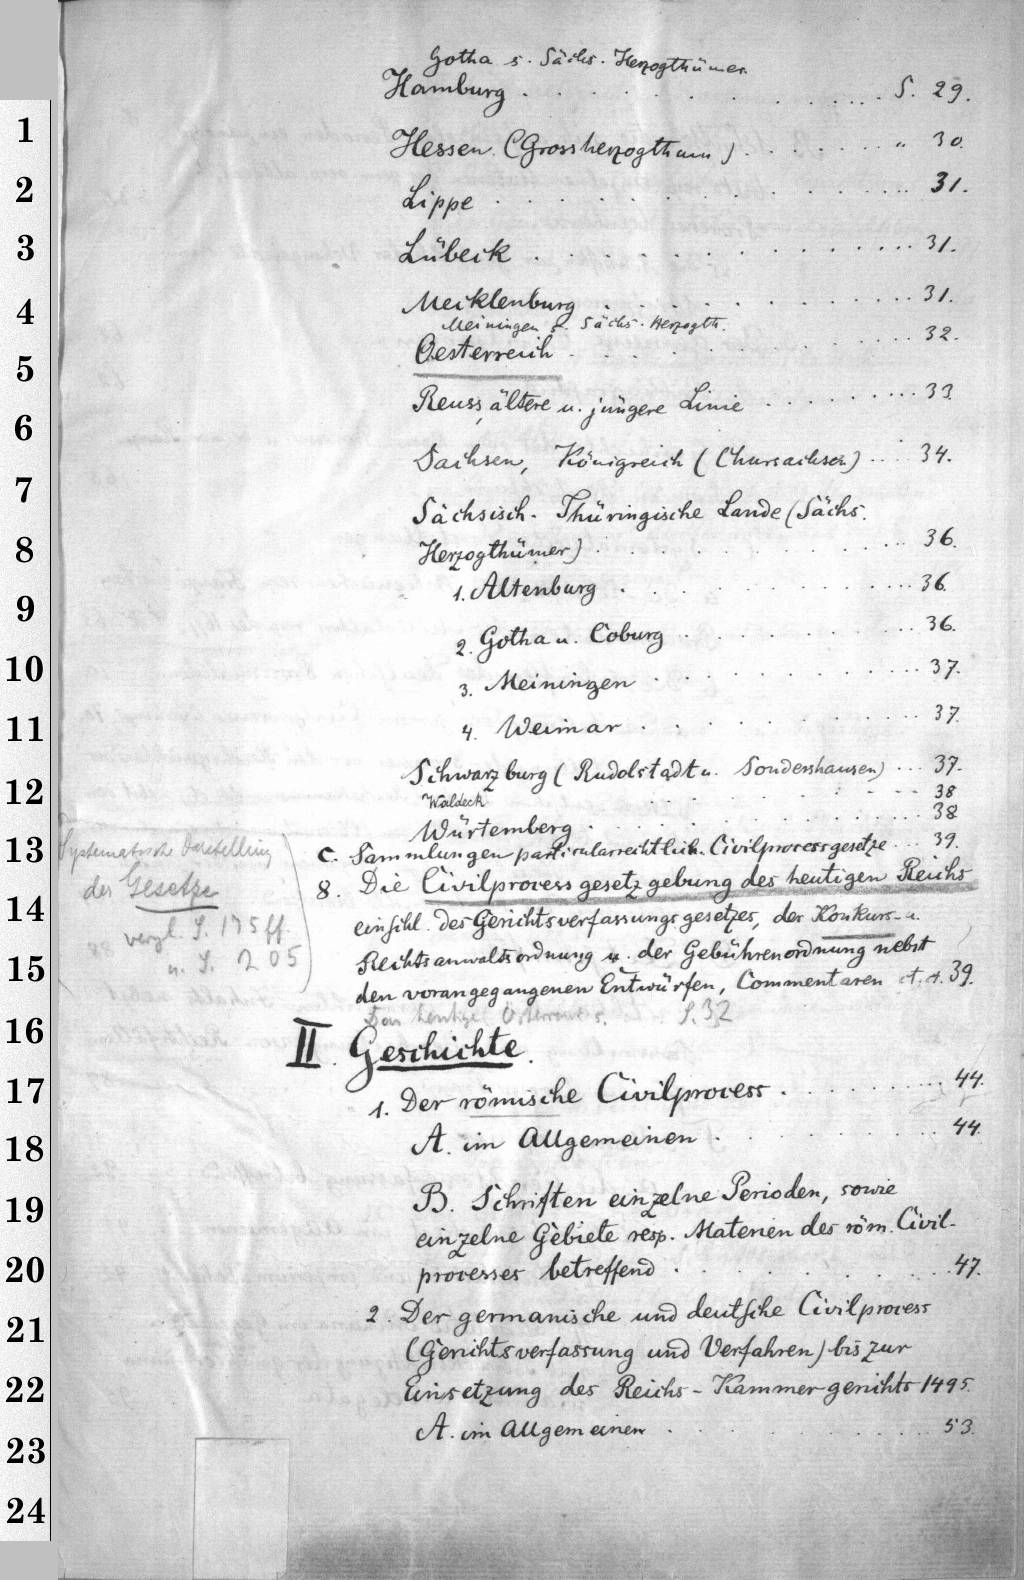 Gotha s. Sächs. Herzogthümer.
Hamburg . . . . . . . . . . S. 29.
Hessen (Grossherzogthum) . . . . . . . " 30.
Lippe . . . . . . . . . . 31.
Lübeck . . . . . . . . . . 31.
Mecklenburg . . . . . . . . . . 31.
Meiningen s. Sächs. Herzogth.
Oesterreich . . . . . . . . . . 32.
Reuss, ältere u. jüngere Linie . . . . . . . . 33.
Sachsen, Königreich (Chursachsen) . . . . 34.
Sächsisch-Thüringische Lande (Sächs.
Herzogthümer) . . . . . . . . . . 36.
1. Altenburg . . . . . . . . . . 36.
2. Gotha u. Coburg . . . . . . . . 36.
3. Meiningen . . . . . . . . 37.
4. Weimar . . . . . . . . 37.
Schwarzburg (Rudolstadt u. Sondershausen) . . . 37.
Waldeck . . . . . . . . 38
Würtemberg . . . . . . . . . . 38
C. Sammlungen particularrechtlich. Civilprocessgesetze . . . 39.
8. Die Civilprocessgesetzgebung des heutigen Reichs
einschl. des Gerichtsverfassungsgesetzes, der Konkurs- u.
Rechtsanwaltsordnung u. der Gebührenordnung nebst
den vorangegangenen Entwürfen, Commentaren et. ct. 39.
Systematische Darstellung
der Gesetze
vergl. S. 175 ff.
u. S. 205
Das heutige Österreich s. S. 32
II. Geschichte.
1. Der römische Civilprocess . . . . . . . . 44.
A. im Allgemeinen . . . . . . . . 44.
B. Schriften einzelne Perioden, sowie
einzelne Gebiete resp. Materien des röm. Civil-
processes betreffend . . . . . . . . . . 47.
2. Der germanische und deutsche Civilprocess
(Gerichtsverfassung und Verfahren) bis zur
Einsetzung des Reichs-Kammergerichts 1495.
A. im Allgemeinen . . . . . . . . 53.
1
2
3
4
5
6
7
8
9
10
11
12
13
14
15
16
17
18
19
20
21
22
23
24